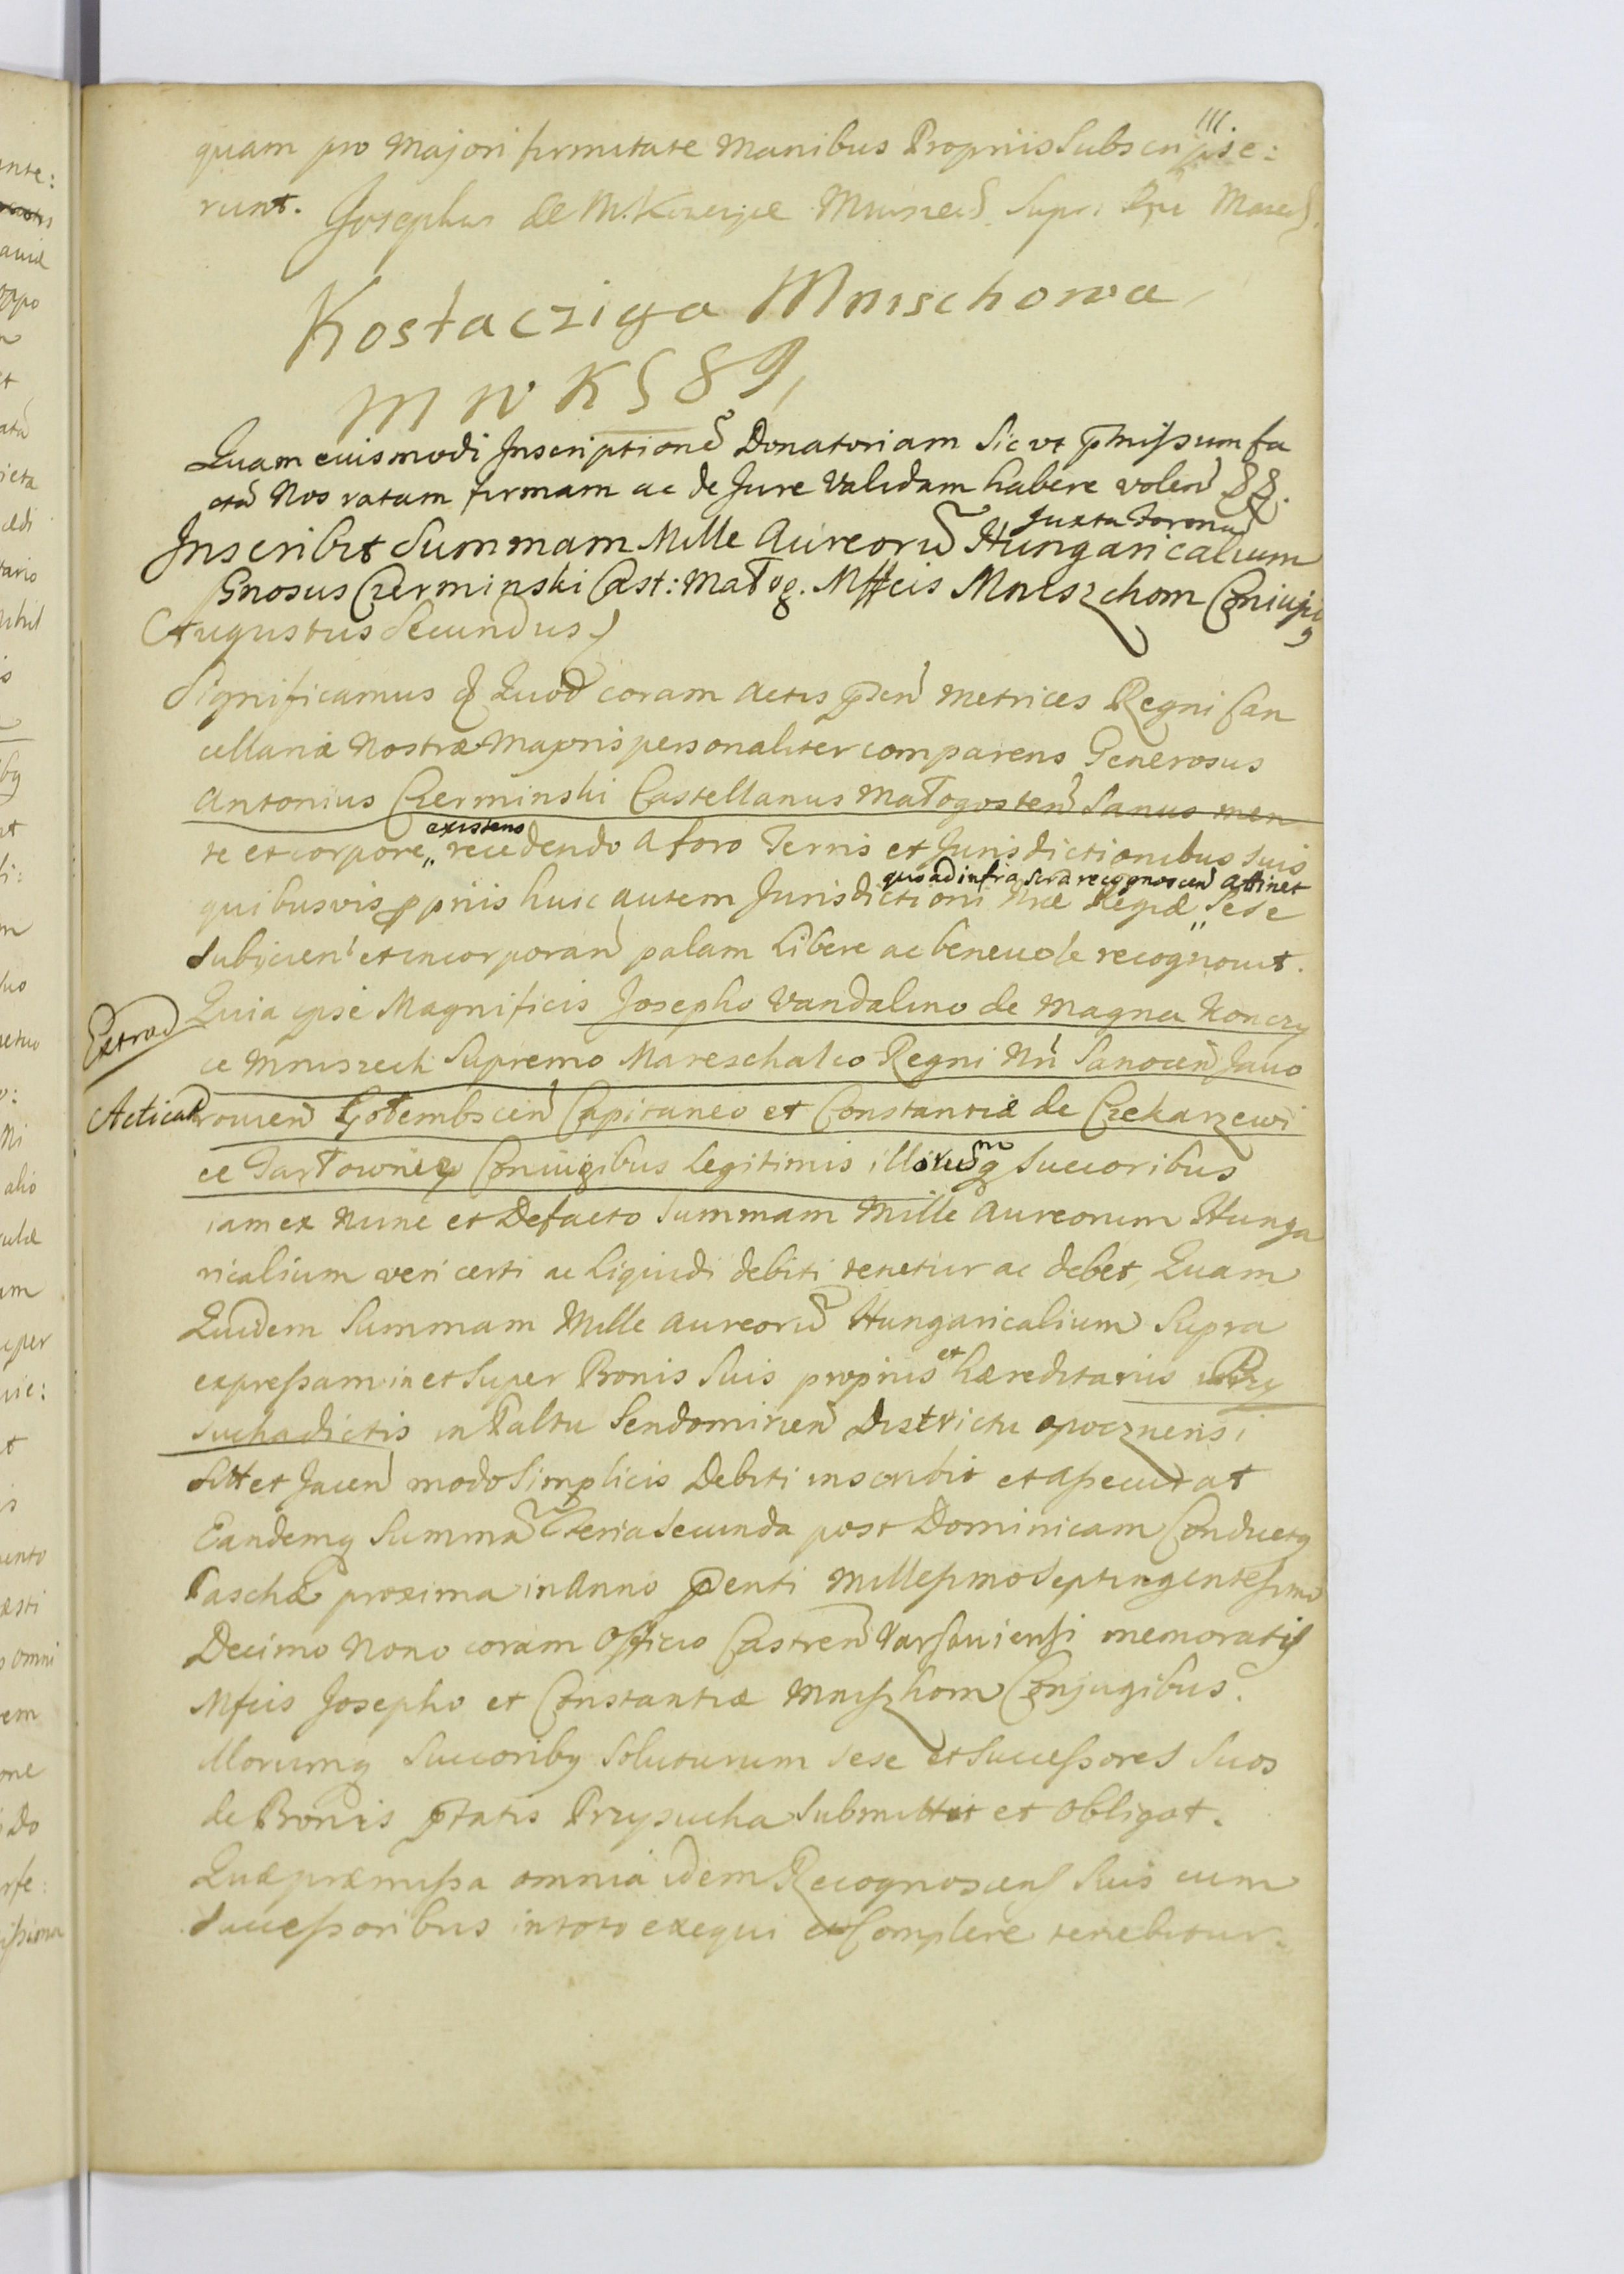 111.
quam pro Majori firmitate Manibus Propriis Subscripse:
runt. Josephus de M. Mniszech Supr. Mares.
Kostacziga Mnischowa
M W K S 8 9
Quam eiusmodi Inscriptionē Donatoriam sic vt pmissum fa
ctā Nos ratam firmam ac de Jure Validam habere volen §§.
juxta Foronu
Inscribit Summam Mille Aureorū Hungaricalium
Gnosus Czerminski Cast: Małog. Mffcis Mniszchom Coniugi
Augustus Secundus
Significamus & Quod coram Actis pden Metrices Regni Can
cellariæ Nostræ Majoris personaliter comparens Generosus
Antonius Czerminski Castellanus Małogosten Sanus men
te et corpore existens recedendo a foro Terris et Jurisdictionibus suis
quibusvis ppriis huic autem Jurisdictioni Nræ Regiæ quoad infra scra recognoscen attinet sese
Subijcien et incorporan palam libere ac beneuole recognouit.
Quia ipse Magnificis Josepho Vandalino de Magna Konczy
Extrad
ce Mniszech Supremo Mareschalco Regni Nri Sanocen Jauo
Acticat rouien Gołembscen Capitaneo et Constantiæ de Czekarzewi
ce Tarłowner Coniugibus legitimis illorumq succoribus
iam ex Nunc et Defacto Summam Mille Aureorum Hunga
ricalium veri certi ac liquidi debiti tenetur ac debet, Quam
Quidem Summam Mille Aureorū Hungaricalium Supra
expressam in et Super Bonis Suis propriis et hæreditariis Przy
suchadictis in Paltu Sendomirien Districtu opocznensi
Sitt et Jacen modo Simplicis Debiti inscribit et assecurat
Eandemq Summā feria secunda post Dominicam Conductq
Paschæ proxima in Anno pdenti Millesimo Septingentesimo
Decimo Nono coram Officio Castren Varsauiensi memoratis
Mfcis Josepho et Constantiæ Mniszhom Conjugibus.
Illorumq Succoribq Soluturum sese et Successores Suos
de Bonis pfatis Przysucha Submittit et obligat.
Quæ præmissa omnia idem Recognoscens Suis cum
Successoribus in toto exequi et Complere tenebitur.